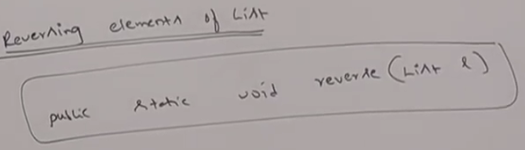 Reversing elements of List
public static void reverse (List l)